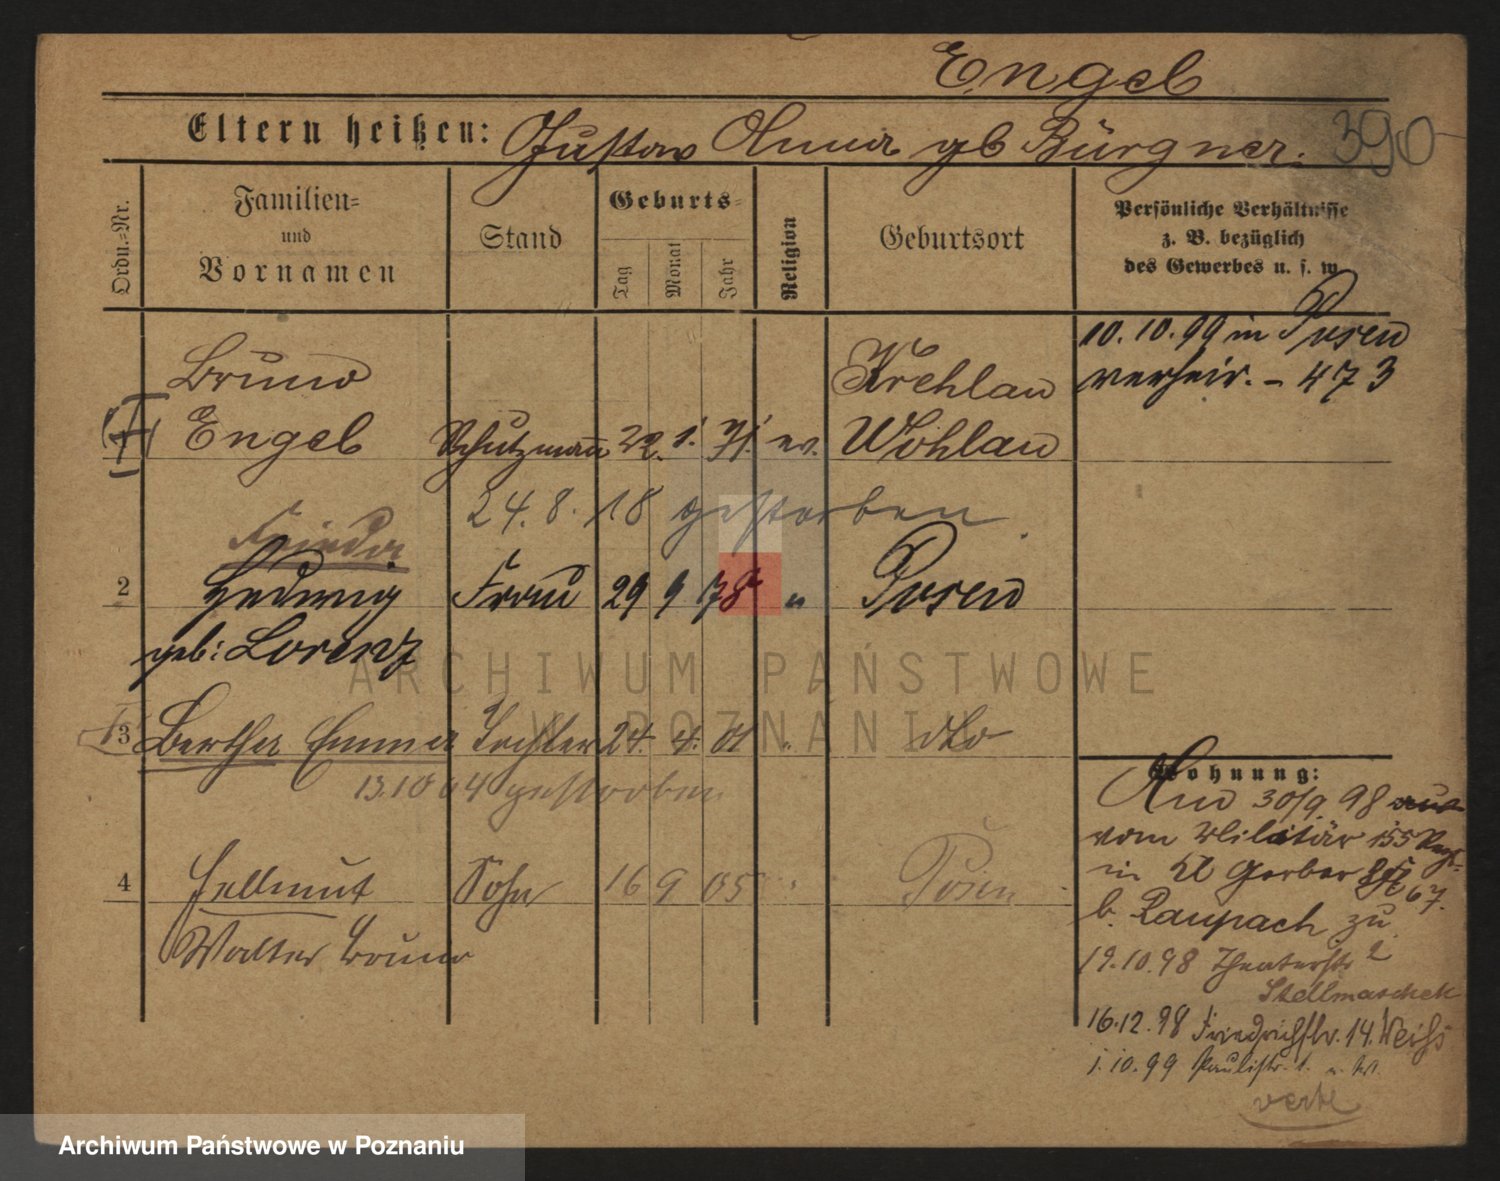 Engel
Eltern heißen: Gustav Anna gb Bürgner. 390
Ordn.=Nr.
Familien= und Vornamen
Stand
Geburts=
Tag Monat Jahr
Religion
Geburtsort
Persönliche Verhältnisse
z. B. bezüglich
des Gewerbes u. s. w.
10.10.99 in Posen
verheir. – 473
Bruno Krehlau
1 Engel Schutzmann 22. 1. 71. ev. Wohlau
24. 8. 18 gestorben
Frieda
2 Hedwig Frau 29 9 78 " Posen
geb: Lorenz
3 Bertha Emma Tochter 24. 4. 01 " dto
13.10 04 gestorben
4 Hellmut Sohn 16 9 05 " Posen
Walter Bruno
Wohnung:
30/9 98 aus
vom Militär 155 Regt.
in Kl Gerber Str 67.
b. Raupach zu
19.10.98 Theaterstr 2
Stellmaschek
16.12.98 Friedrichstr. 14. Weiss
1.10.99 Paulistr. 1.
verte
ARCHIWUM PAŃSTWOWE
W POZNANIU
Archiwum Państwowe w Poznaniu